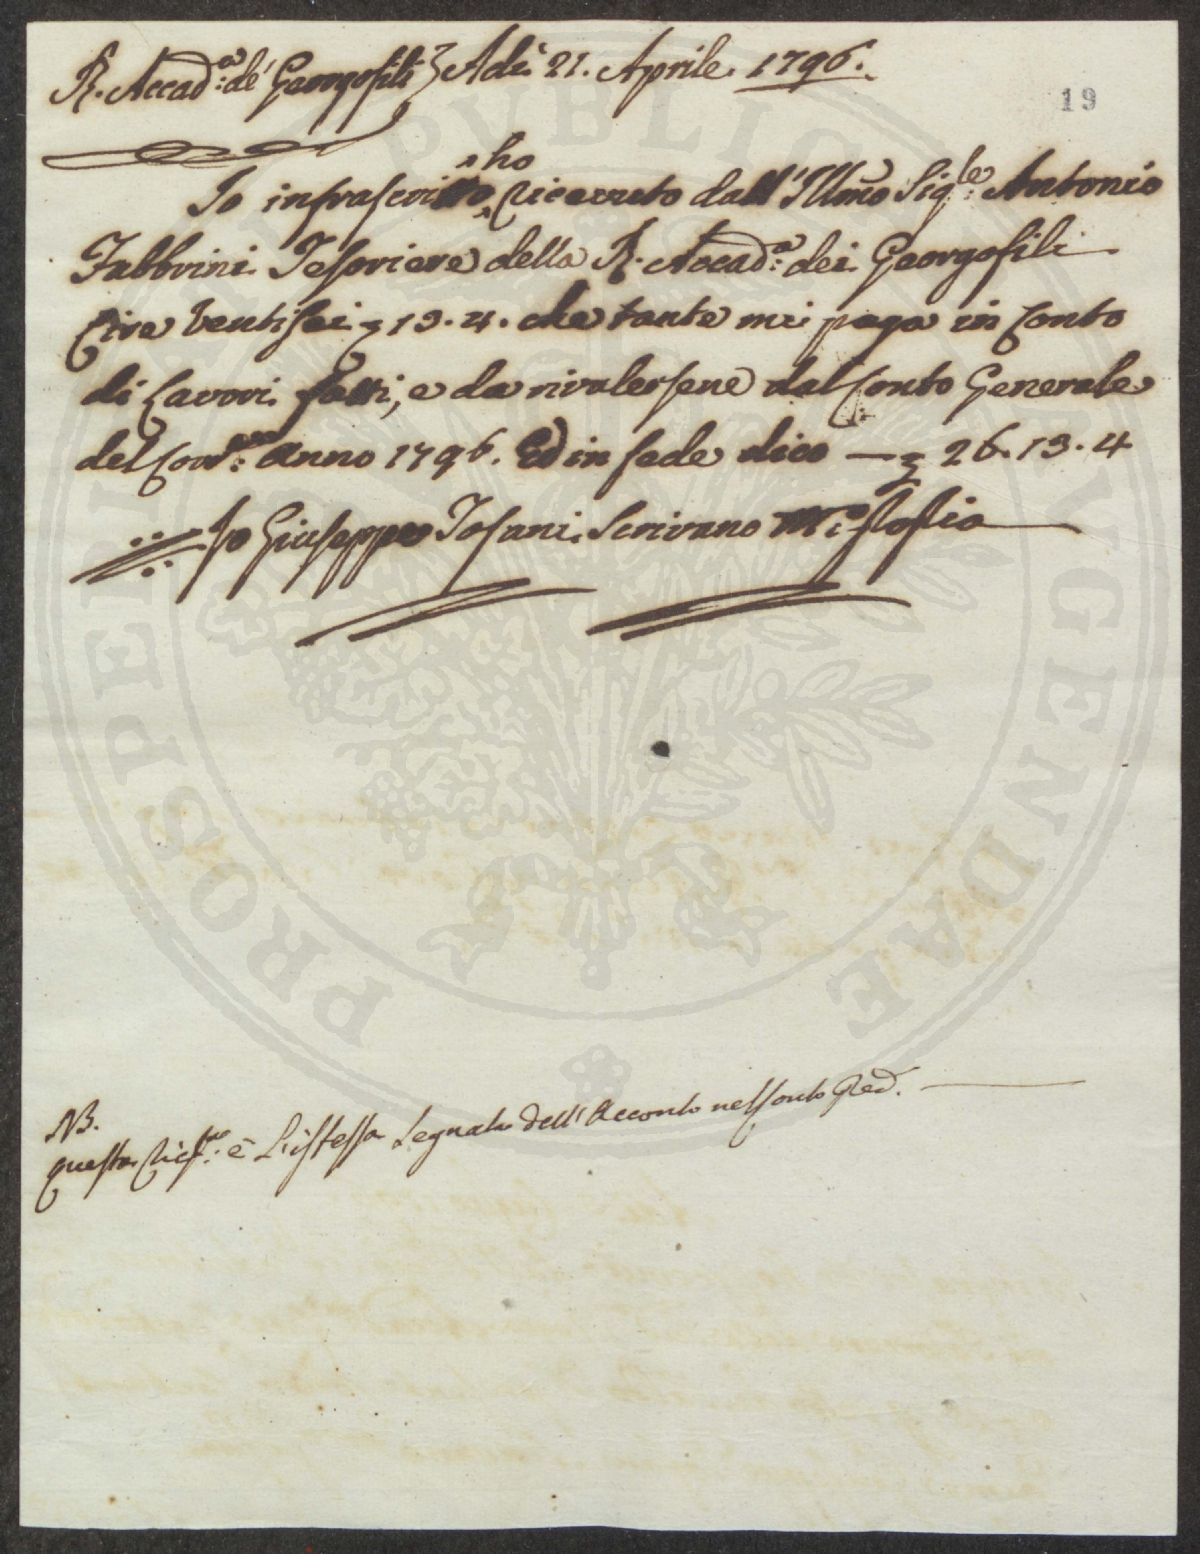 R. Accad.a de' Georgofili } Adì 21. Aprile. 1796.
19
Io infrascritto ho ricevuto dall' Illmo Sig.le Antonio
Fabbrini. Tesoriere della R. Accad.a dei Georgofili
Lire Ventisei 13. 4. che tante mi paga in Conto
di Lavori fatti, e da rivalersene dal Conto Generale
del Anno 1796. Ed in fede dico — 26. 13. 4
Io Giuseppe Tofani. Scrivano
NB.
questa è L'istessa Segnata dell' Acconto nel Conto
PROSPERITATI PUBLICAE AUGENDAE